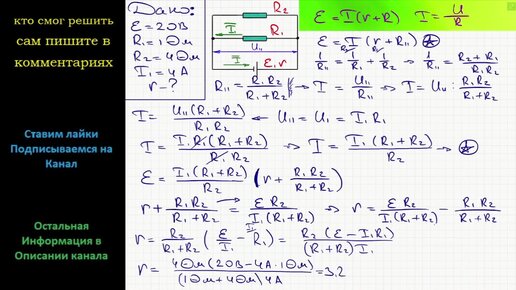 кто смог решить
сам пишите в
комментариях
Ставим лайки
Подписываемся на
Канал
Остальная
Информация в
Описании канала
Дано:
ε = 20В
R₁ = 1Ом
R₂ = 4Ом
I₁ = 4А
r - ?
R₂
I₁
R₁
U₁₁
I
ε, r
ε = I(r + R) I = U/R
ε = I(r + R₁₁)
1/R₁₁ = 1/R₁ + 1/R₂ → 1/R₁₁ = (R₂ + R₁)/(R₁R₂)
R₁₁ = R₁R₂/(R₁ + R₂) → I = U₁₁/R₁₁ → I = U₁₁ : R₁R₂/(R₁ + R₂)
I = U₁₁(R₁ + R₂)/(R₁R₂) ← U₁₁ = U₁ = I₁R₁
I = I₁R₁(R₁ + R₂)/(R₁R₂) → I = I₁(R₁ + R₂)/R₂ →
ε = I₁(R₁ + R₂)/R₂ (r + R₁R₂/(R₁ + R₂))
r + R₁R₂/(R₁ + R₂) = εR₂/(I₁(R₁ + R₂)) → r = εR₂/(I₁(R₁ + R₂)) - R₁R₂/(R₁ + R₂)
r = R₂/(R₁ + R₂) (ε/I₁ - R₁) = R₂(ε - I₁R₁)/((R₁ + R₂)I₁)
r = 4Ом(20В - 4А·1Ом)/((1Ом + 4Ом)4А) = 3.2